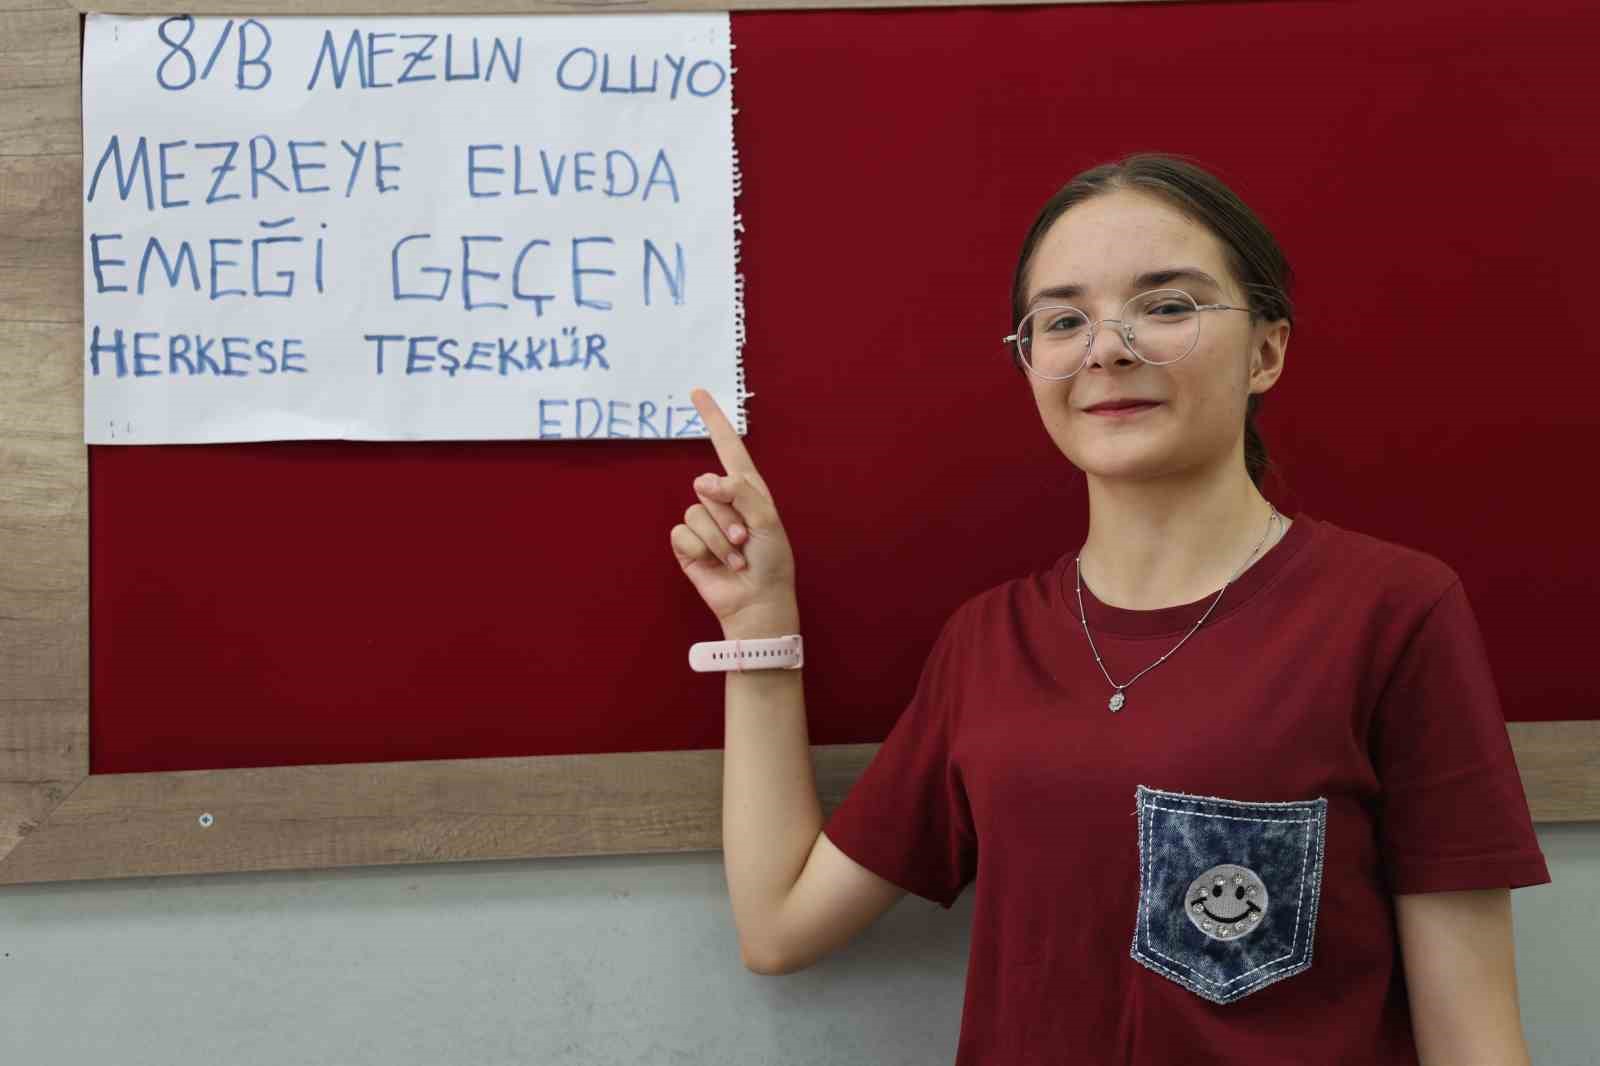 8/B MEZUN OLUYO
MEZREYE ELVEDA
EMEĞİ GEÇEN
HERKESE TEŞEKKÜR
EDERİZ